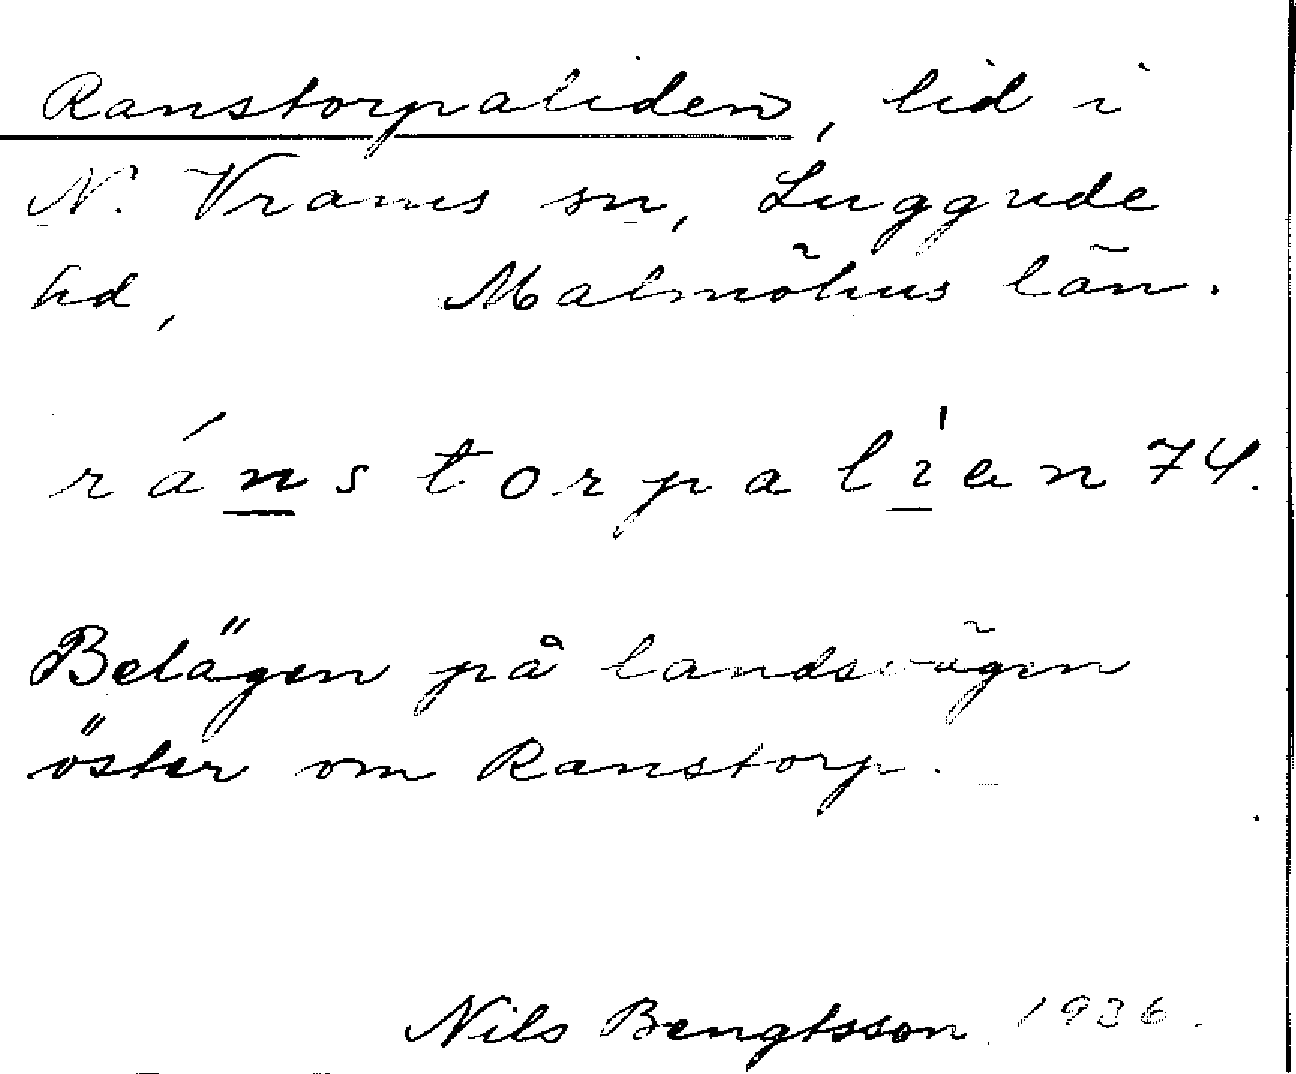 Ranstorpaliden, lid i
N. Vrams sn, Luggude
hd, Malmöhus län.
ránstorpalien 74.
Belägen på landsvägen
öster om Ranstorp.
Nils Bengtsson 1936.